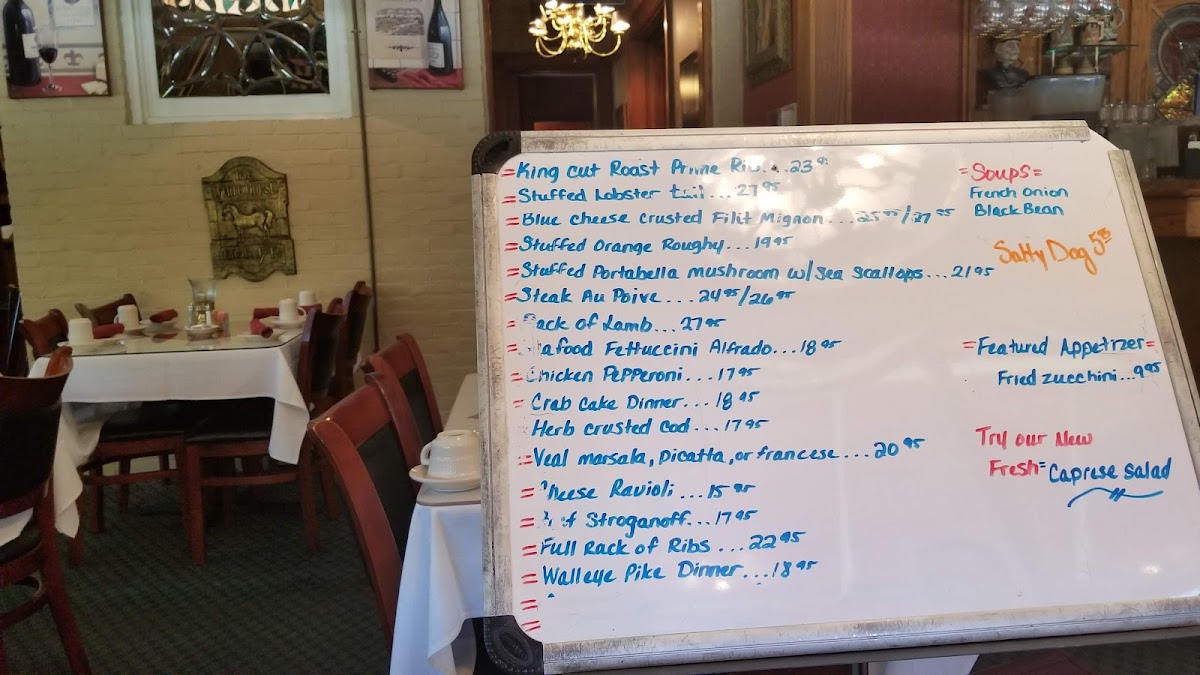 =King cut Roast Prime Rib...23 95
=Stuffed Lobster tail...27 95
=Blue cheese crusted Filit Mignon...25 95/27 95
=Stuffed Orange Roughy...19 95
=Stuffed Portabella mushroom w/Sea Scallops...21 95
=Steak Au Poive...24 95/26 95
=Rack of Lamb...27 95
=eafood Fettuccini Alfrado...18 95
=Chicken Pepperoni...17 95
=Crab Cake Dinner...18 95
Herb crusted Cod...17 95
=Veal marsala, picatta, or francese....20 95
=Cheese Ravioli...15 95
=ef Stroganoff...17 95
=Full Rack of Ribs...22 95
=Walleye Pike Dinner...18 95
=
=
=Soups=
French Onion
Black Bean
Salty Dog 5 95
=Featured Appetizer=
Fried zucchini...9 95
Try our New
Fresh=Caprese Salad